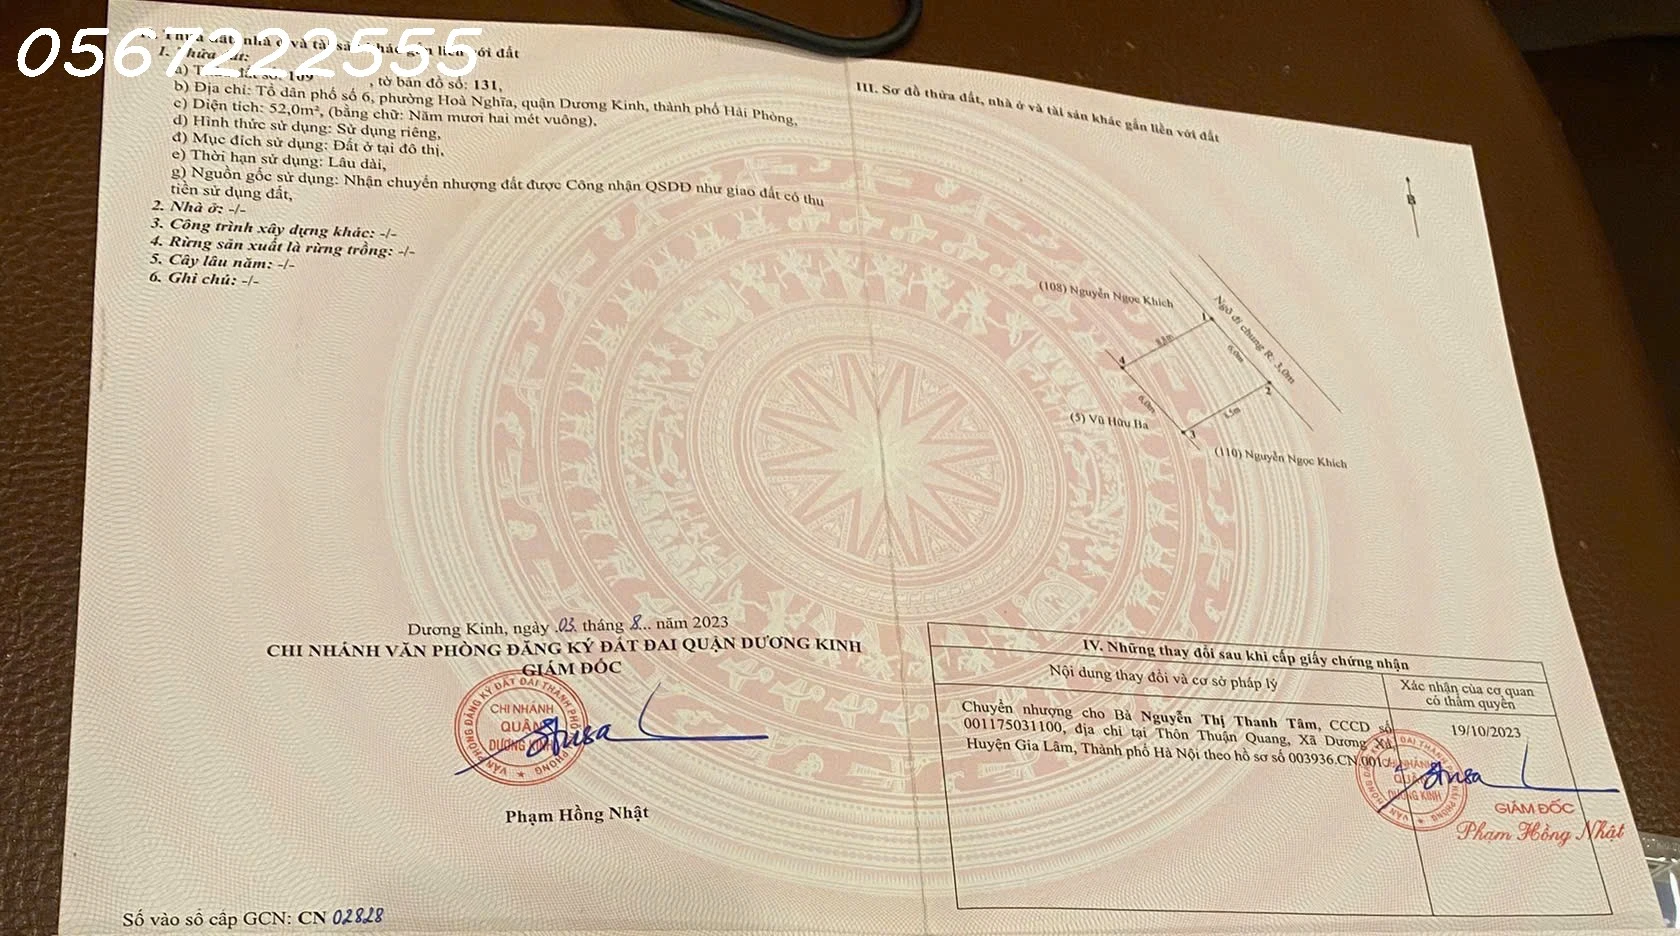 0567222555
Thửa đất, nhà ở và tài sản khác gắn liền với đất
1. Thửa đất:
a) Thửa đất số: 109, tờ bản đồ số: 131,
b) Địa chỉ: Tổ dân phố số 6, phường Hoà Nghĩa, quận Dương Kinh, thành phố Hải Phòng,
c) Diện tích: 52,0m², (bằng chữ: Năm mươi hai mét vuông),
d) Hình thức sử dụng: Sử dụng riêng,
đ) Mục đích sử dụng: Đất ở tại đô thị,
e) Thời hạn sử dụng: Lâu dài,
g) Nguồn gốc sử dụng: Nhận chuyển nhượng đất được Công nhận QSDĐ như giao đất có thu
tiền sử dụng đất,
2. Nhà ở: -/-
3. Công trình xây dựng khác: -/-
4. Rừng sản xuất là rừng trồng: -/-
5. Cây lâu năm: -/-
6. Ghi chú: -/-
Dương Kinh, ngày 03 tháng 8... năm 2023
CHI NHÁNH VĂN PHÒNG ĐĂNG KÝ ĐẤT ĐAI QUẬN DƯƠNG KINH
GIÁM ĐỐC
VĂN PHÒNG ĐĂNG KÝ ĐẤT ĐAI THÀNH PHỐ HẢI PHÒNG
CHI NHÁNH
QUẬN
DƯƠNG KINH
Phạm Hồng Nhật
Số vào sổ cấp GCN: CN 02828
III. Sơ đồ thửa đất, nhà ở và tài sản khác gắn liền với đất
B
(108) Nguyễn Ngọc Khích
Ngõ đi chung R: 3,0m
1
6,0m
4
2
6,0m
8,5m
3
(5) Vũ Hữu Ba
(110) Nguyễn Ngọc Khích
IV. Những thay đổi sau khi cấp giấy chứng nhận
Nội dung thay đổi và cơ sở pháp lý
Xác nhận của cơ quan
có thẩm quyền
Chuyển nhượng cho Bà Nguyễn Thị Thanh Tâm, CCCD số
001175031100, địa chỉ tại Thôn Thuận Quang, Xã Dương Xá,
Huyện Gia Lâm, Thành phố Hà Nội theo hồ sơ số 003936.CN.001
19/10/2023
CHI NHÁNH
QUẬN
DƯƠNG KINH
GIÁM ĐỐC
Phạm Hồng Nhật